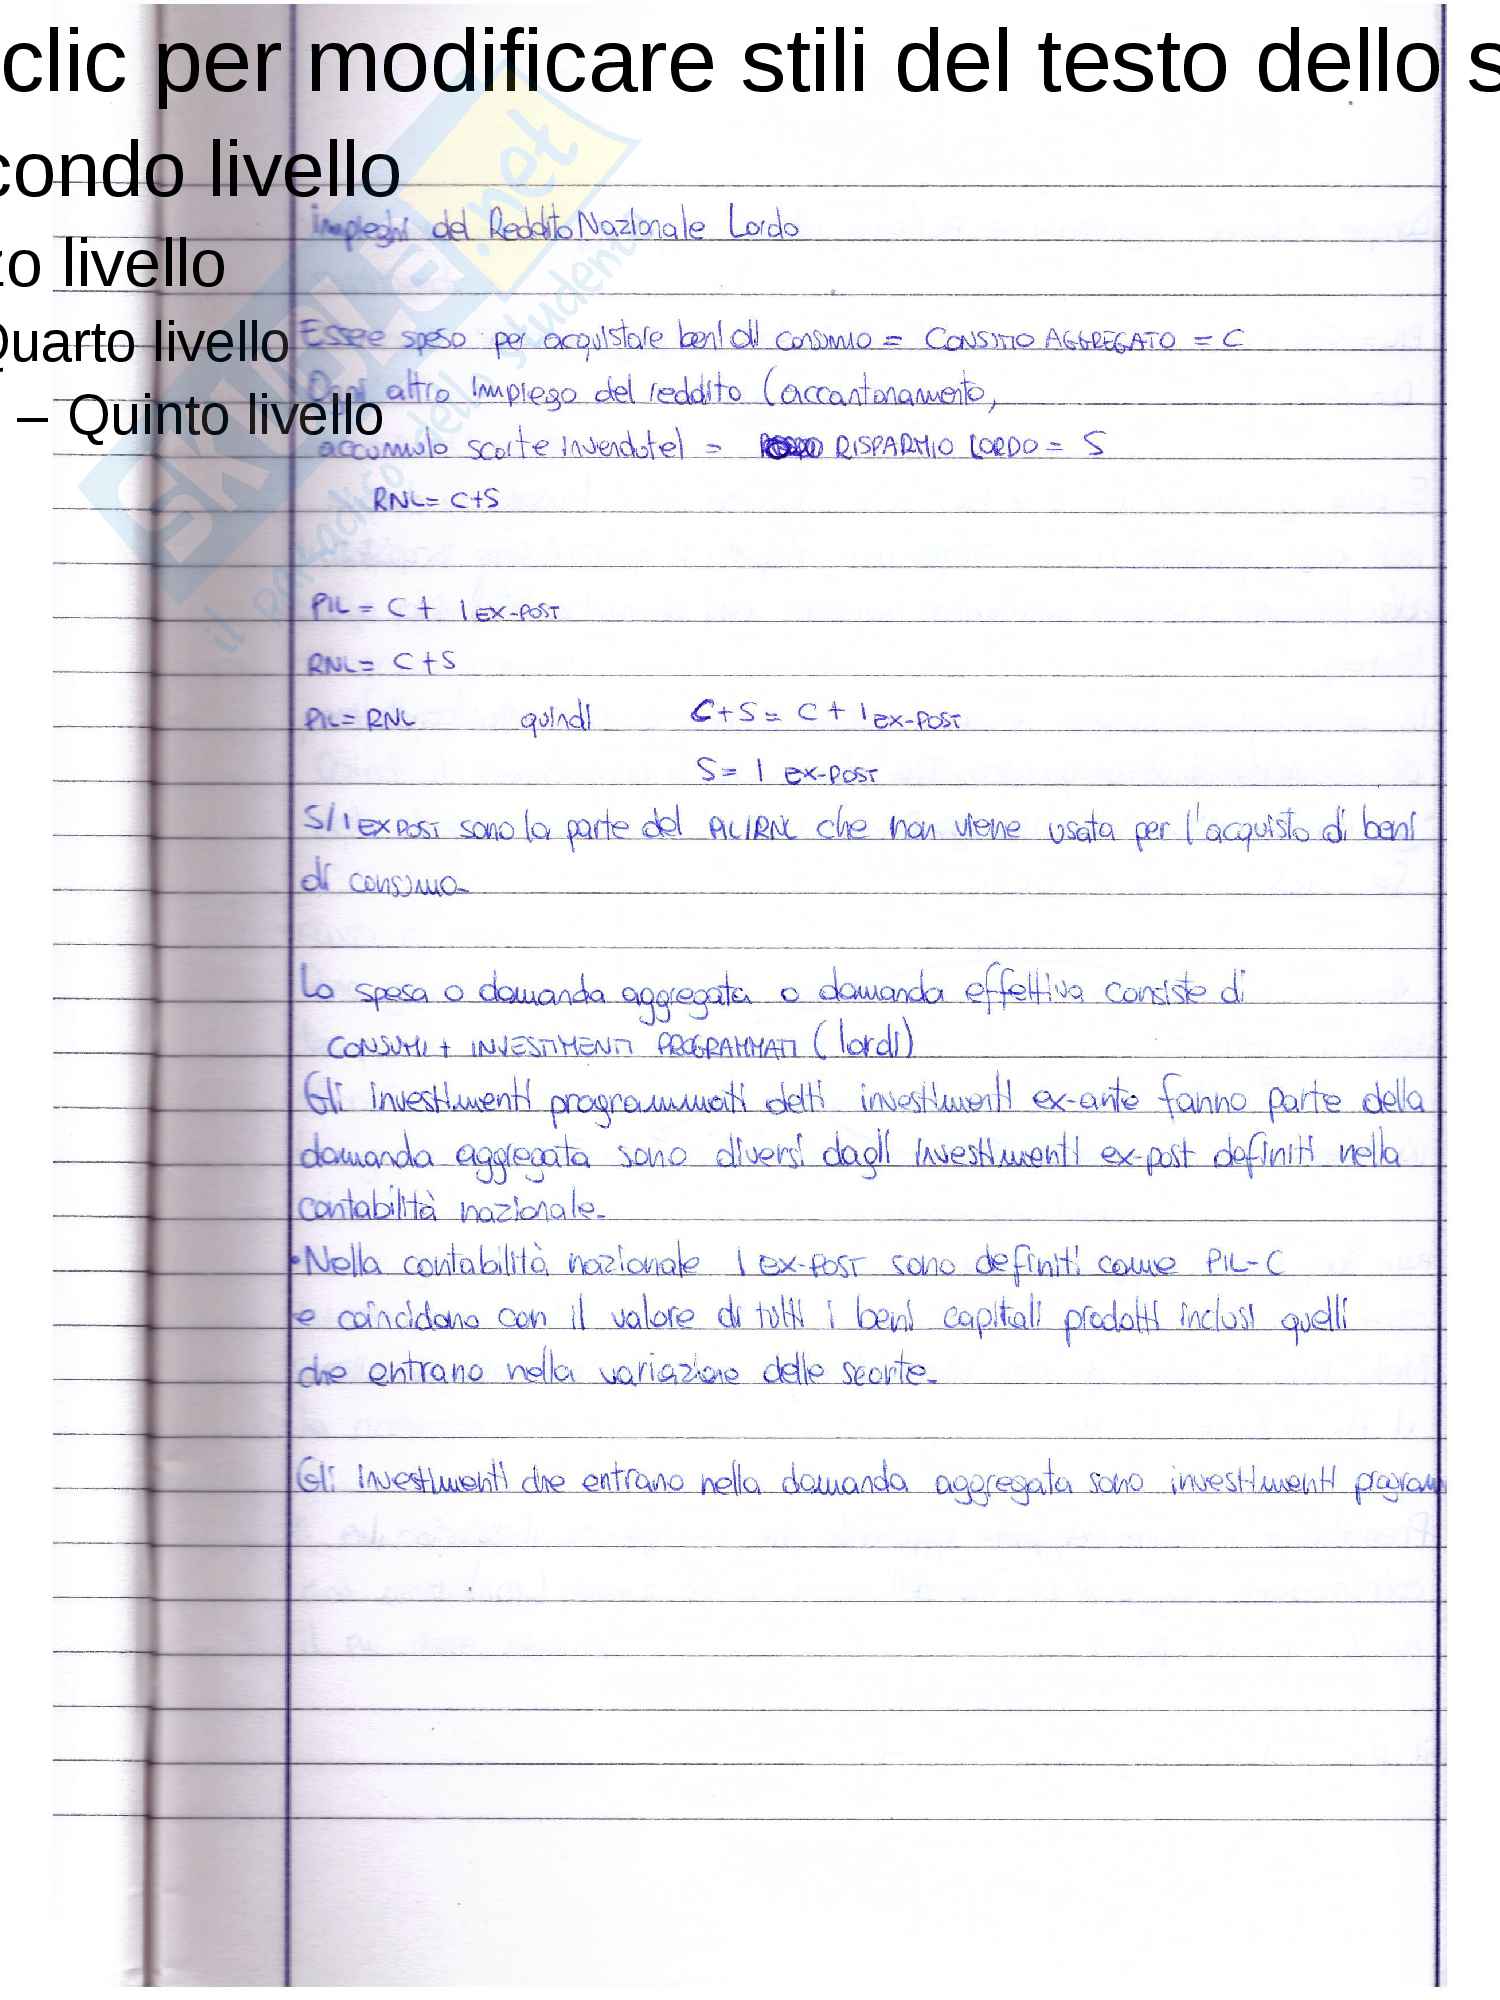 clic per modificare stili del testo dello s
condo livello
zo livello
Quarto livello
– Quinto livello
skuola.net
il paradiso dello studente
Impieghi del Reddito Nazionale Lordo
Essere speso per acquistare beni di consumo = CONSUMO AGGREGATO = C
Ogni altro impiego del reddito (accantonamento,
accumulo scorte invendute) = RISPARMIO LORDO = S
RNL= C+S
PIL = C + I EX-POST
RNL= C+S
PIL= RNL quindi C+S = C + I EX-POST
S= I EX-POST
S/I EX POST sono la parte del PIL/RNL che non viene usata per l'acquisto di beni
di consumo.
La spesa o domanda aggregata o domanda effettiva consiste di
CONSUMI + INVESTIMENTI PROGRAMMATI (lordi)
Gli investimenti programmati detti investimenti ex-ante fanno parte della
domanda aggregata sono diversi dagli investimenti ex-post definiti nella
contabilità nazionale.
• Nella contabilità nazionale I EX-POST sono definiti come PIL-C
e coincidono con il valore di tutti i beni capitali prodotti inclusi quelli
che entrano nella variazione delle scorte.
Gli investimenti che entrano nella domanda aggregata sono investimenti program